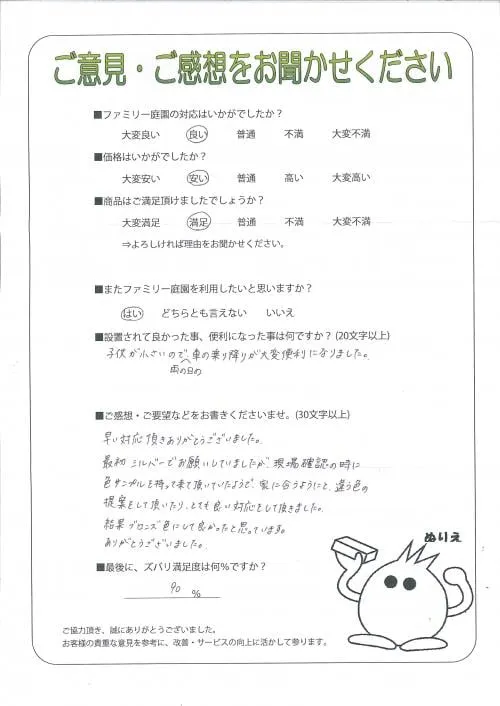 ご意見・ご感想をお聞かせください
■ファミリー庭園の対応はいかがでしたか？
大変良い 良い 普通 不満 大変不満
■価格はいかがでしたか？
大変安い 安い 普通 高い 大変高い
■商品はご満足頂けましたでしょうか？
大変満足 満足 普通 不満 大変不満
⇒よろしければ理由をお聞かせください。
■またファミリー庭園を利用したいと思いますか？
はい どちらとも言えない いいえ
■設置されて良かった事、便利になった事は何ですか？(20文字以上)
子供が小さいので、車の乗り降りが大変便利になりました。
雨の日の
■ご感想・ご要望などをお書きくださいませ。(30文字以上)
早い対応頂きありがとうございました。
最初シルバーでお願いしていましたが、現場確認の時に
色サンプルを持って来て頂いていたようで、家に合うようにと、違う色の
提案をして頂いたり、とても良い対応をして頂きました。
結果ブロンズ色にして良かったと思っています。
ありがとうございました。
ぬりえ
■最後に、ズバリ満足度は何％ですか？
90 %
ご協力頂き、誠にありがとうございました。
お客様の貴重な意見を参考に、改善・サービスの向上に活かして参ります。